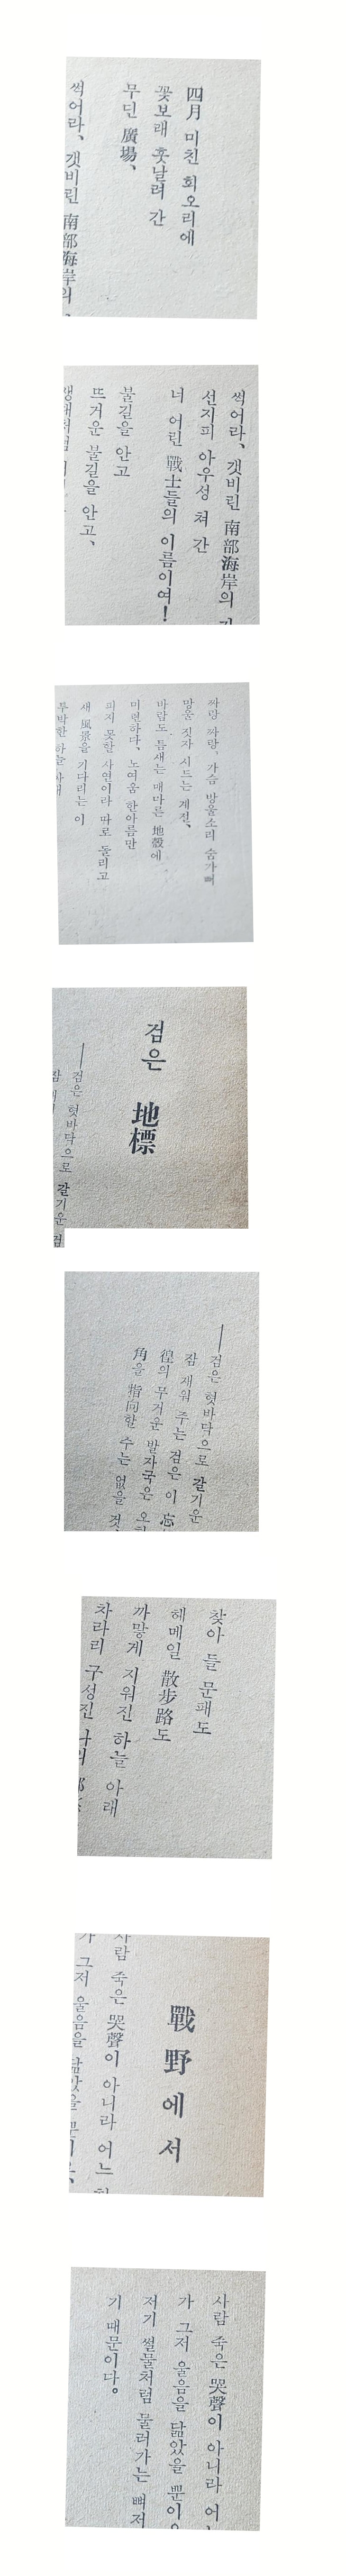 四月 미친 회오리에
꽃보래 흣날려 간
무딘 廣場、
썩어라、갯비린 南部海岸의
썩어라、갯비린 南部海岸의
선지피 아우성 쳐 간
너 어린 戰士들의 이름이여!
불길을 안고
뜨거운 불길을 안고、
짜랑 짜랑、가슴 방울소리 숨가삐
망울 짓자 시드는 계절、
바람도 틈새는 메마른 地殼에
미련하다、노여움 한아름만
피지 못할 사연이라 따로 돌리고
새 風景을 기다리는 이
투박한 하늘
검은 地標
―검은 헛바닥으로 갈기운 검
잠
―검은 헛바닥으로 갈기운
잠 재워 주는 검은 이 忘
徨의 무거운 발자국은 오
角을 指向할 수는 없을 것
찾아 들 문패도
헤메일 散步路도
까맣게 지워진 하늘 아래
차라리 구성진 나의
戰野에서
사람 죽은 哭聲이 아니라 어느
가 그저 울음을 닮았을 뿐
사람 죽은 哭聲이 아니라 어
가 그저 울음을 닮았을 뿐이
저기 썰물처럼 물러가는 뼈저
기 때문이다。